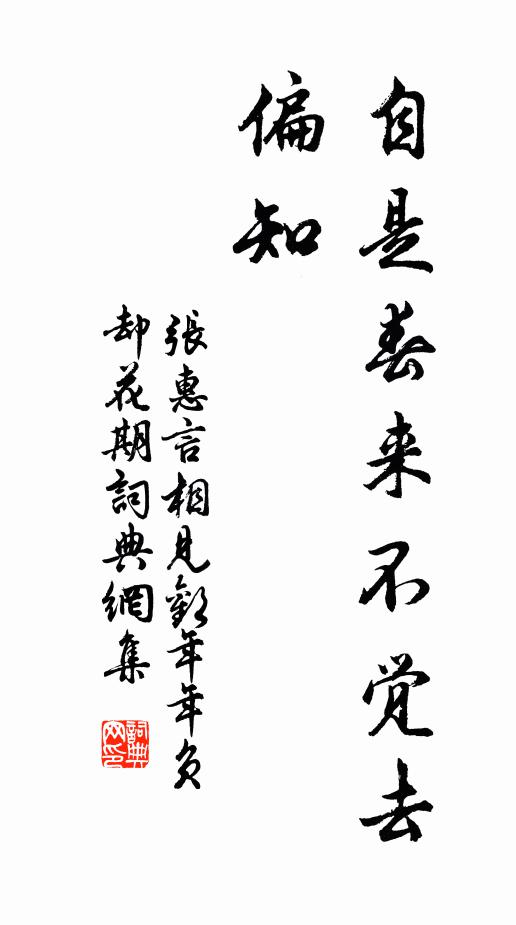 自是春来不觉去
偏知
張惠言相見歡年年负
却花期詞典網集
詞典
网印